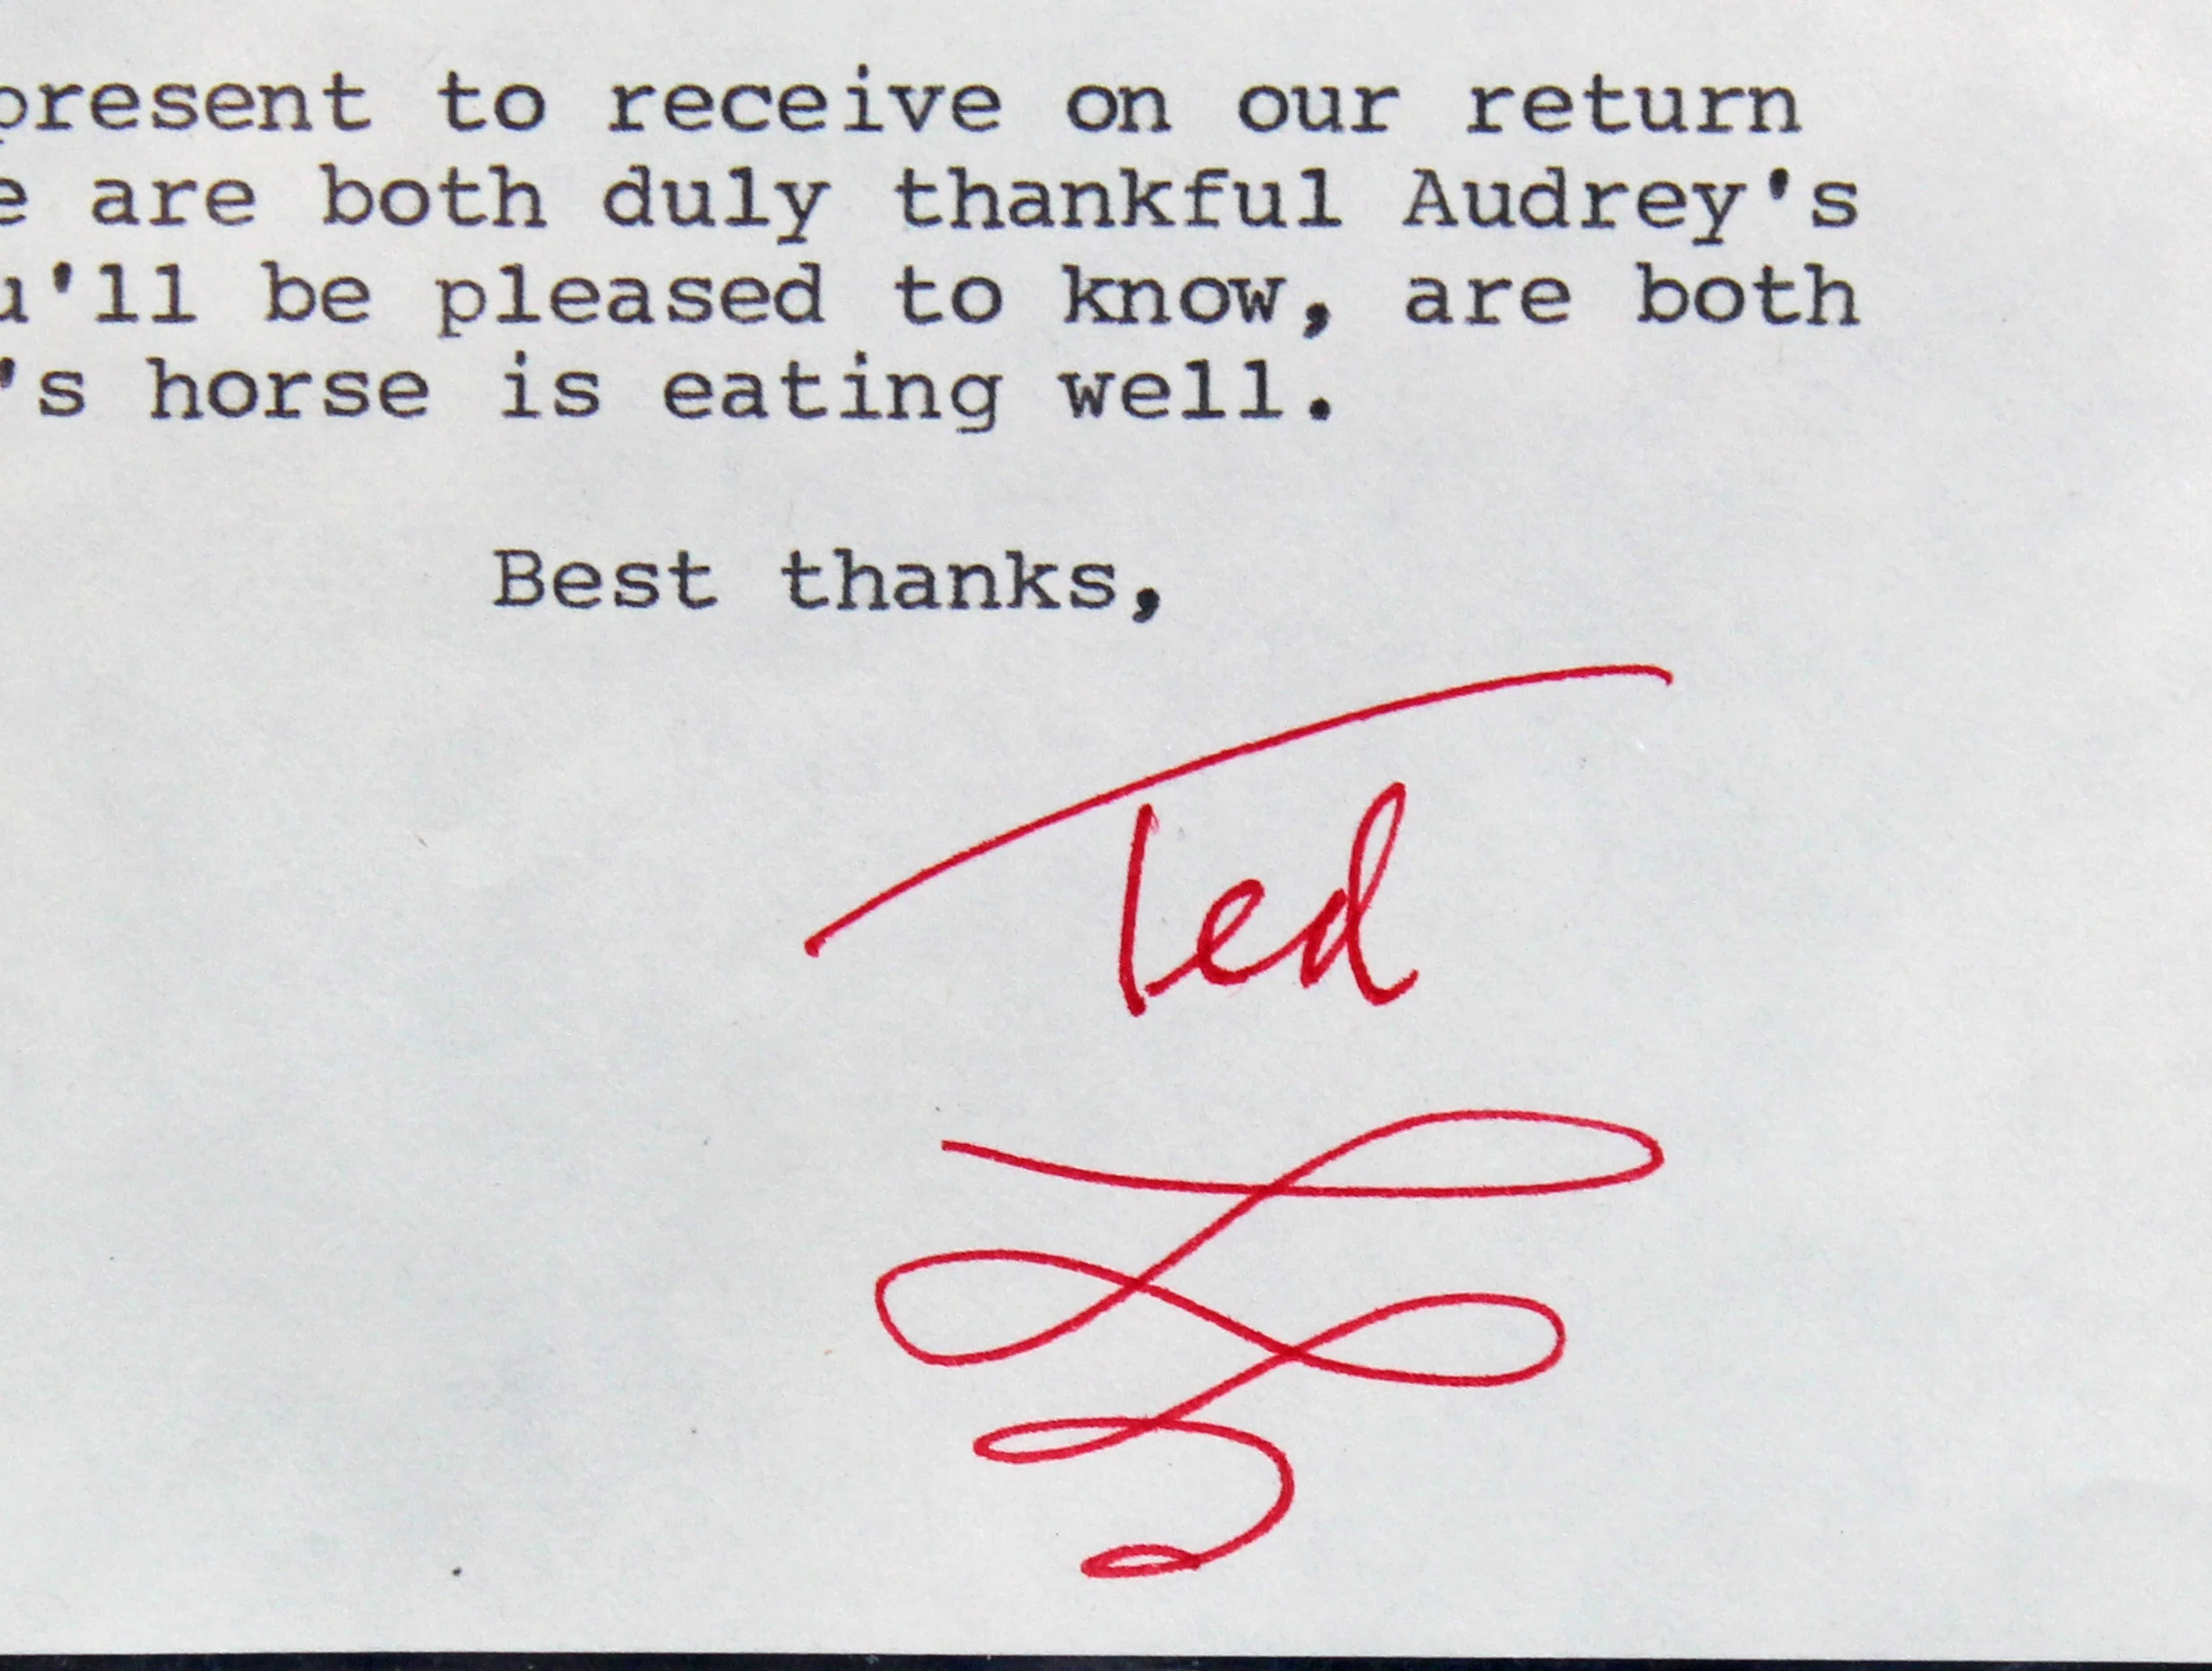 present to receive on our return
e are both duly thankful Audrey's
u'll be pleased to know, are both
's horse is eating well.
Best thanks,
Ted